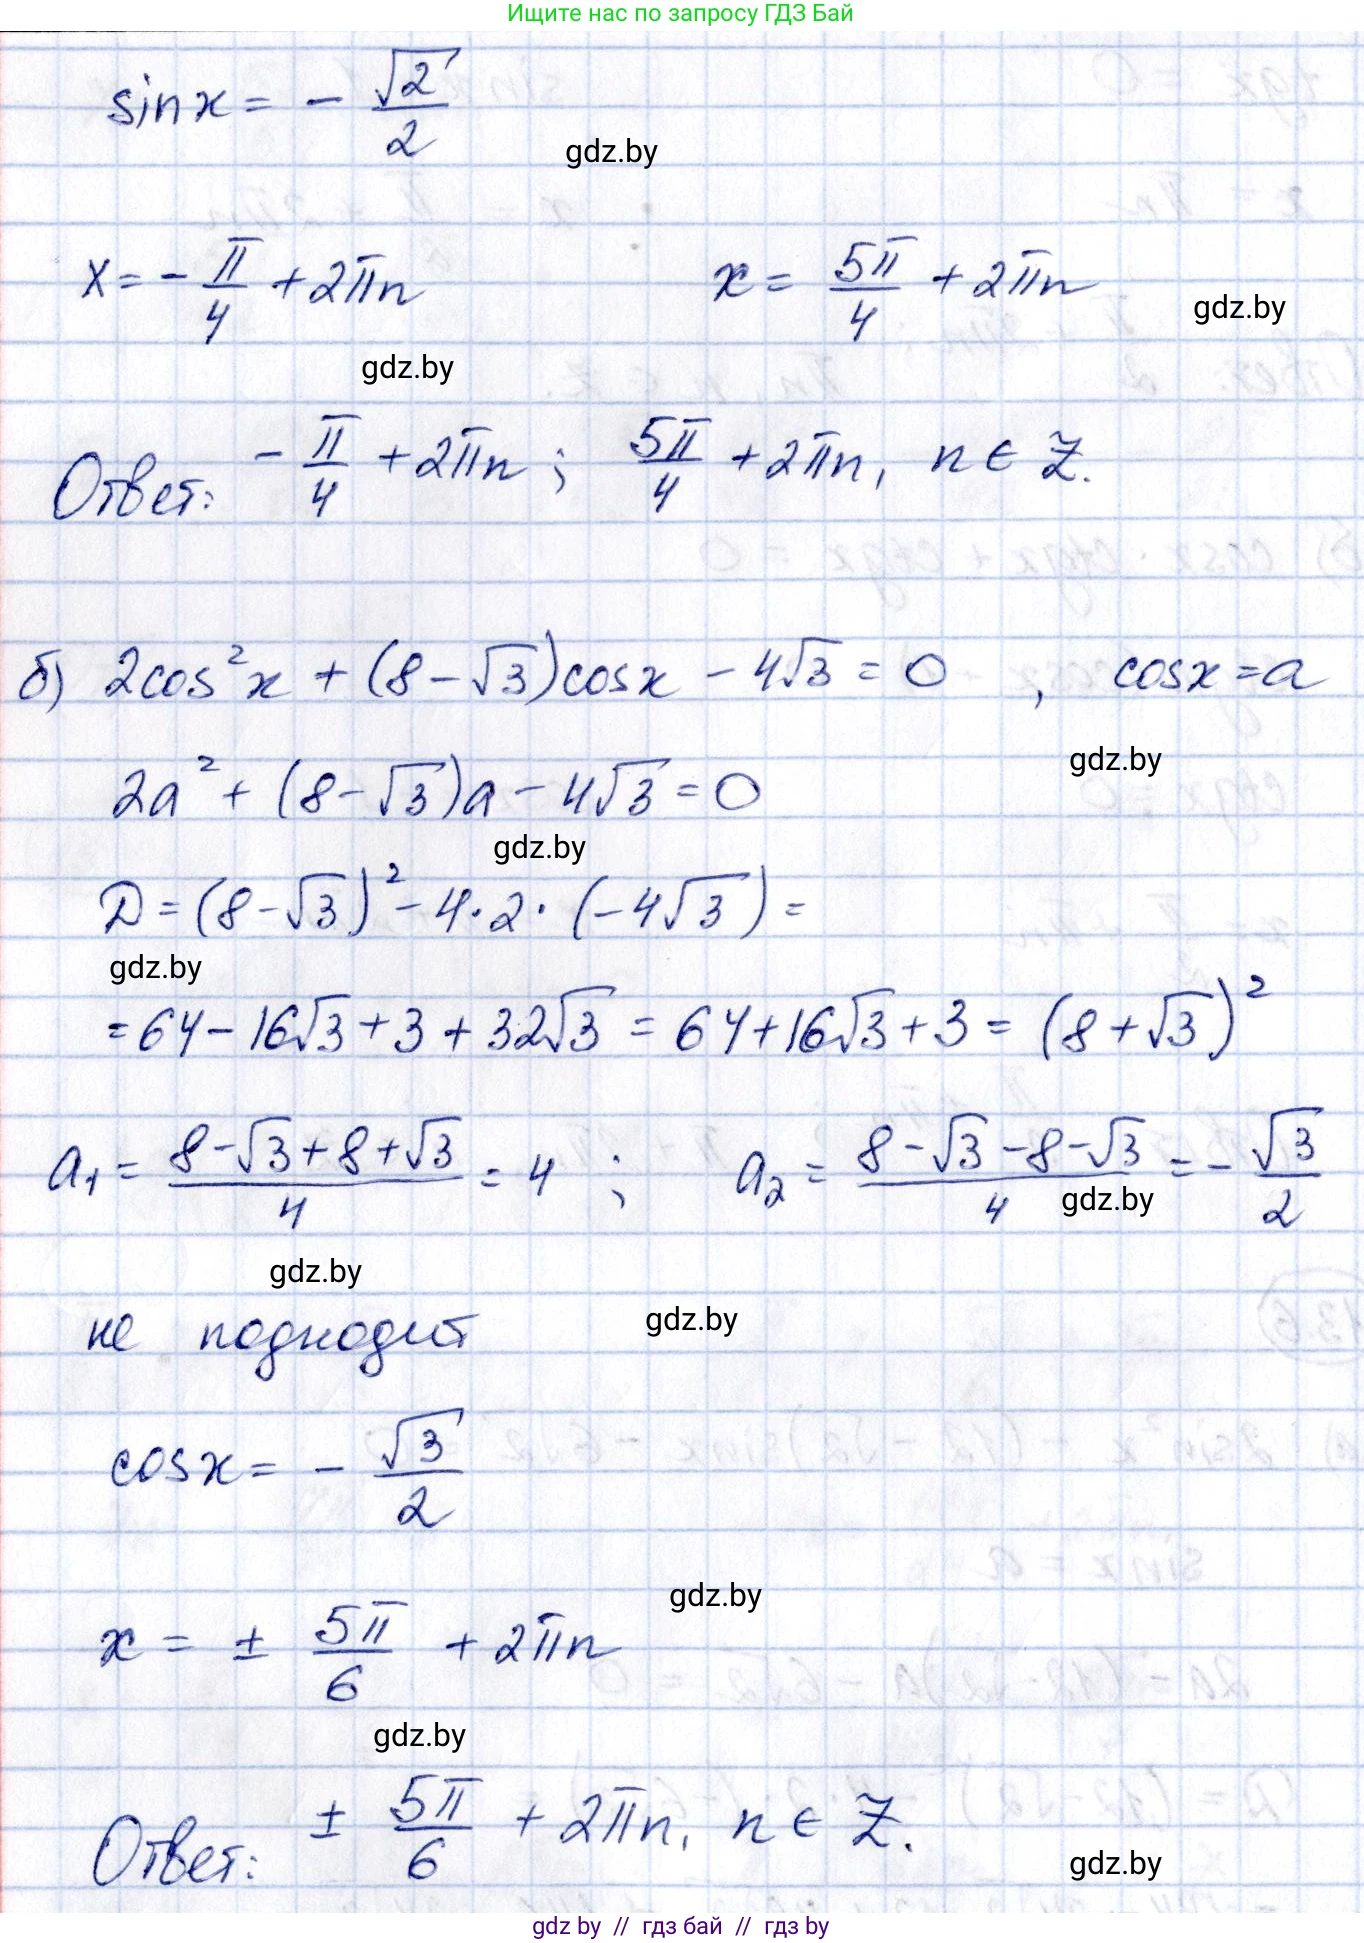 Ищите нас по запросу ГДЗ Бай
sin x = - √2/2
gdz.by
x = - π/4 + 2πn x = 5π/4 + 2πn
gdz.by
gdz.by
Ответ: - π/4 + 2πn ; 5π/4 + 2πn, n ∈ Z.
б) 2cos²x + (8 - √3)cosx - 4√3 = 0 , cosx = a
gdz.by
2a² + (8 - √3)a - 4√3 = 0
gdz.by
D = (8 - √3)² - 4·2·(-4√3) =
gdz.by
= 64 - 16√3 + 3 + 32√3 = 64 + 16√3 + 3 = (8 + √3)²
a₁ = (8 - √3 + 8 + √3)/4 = 4 ; a₂ = (8 - √3 - 8 - √3)/4 = - √3/2
gdz.by
gdz.by
gdz.by
не подходит
cosx = - √3/2
gdz.by
x = ± 5π/6 + 2πn
gdz.by
Ответ: ± 5π/6 + 2πn, n ∈ Z.
gdz.by
gdz by // гдз бай // gdz by